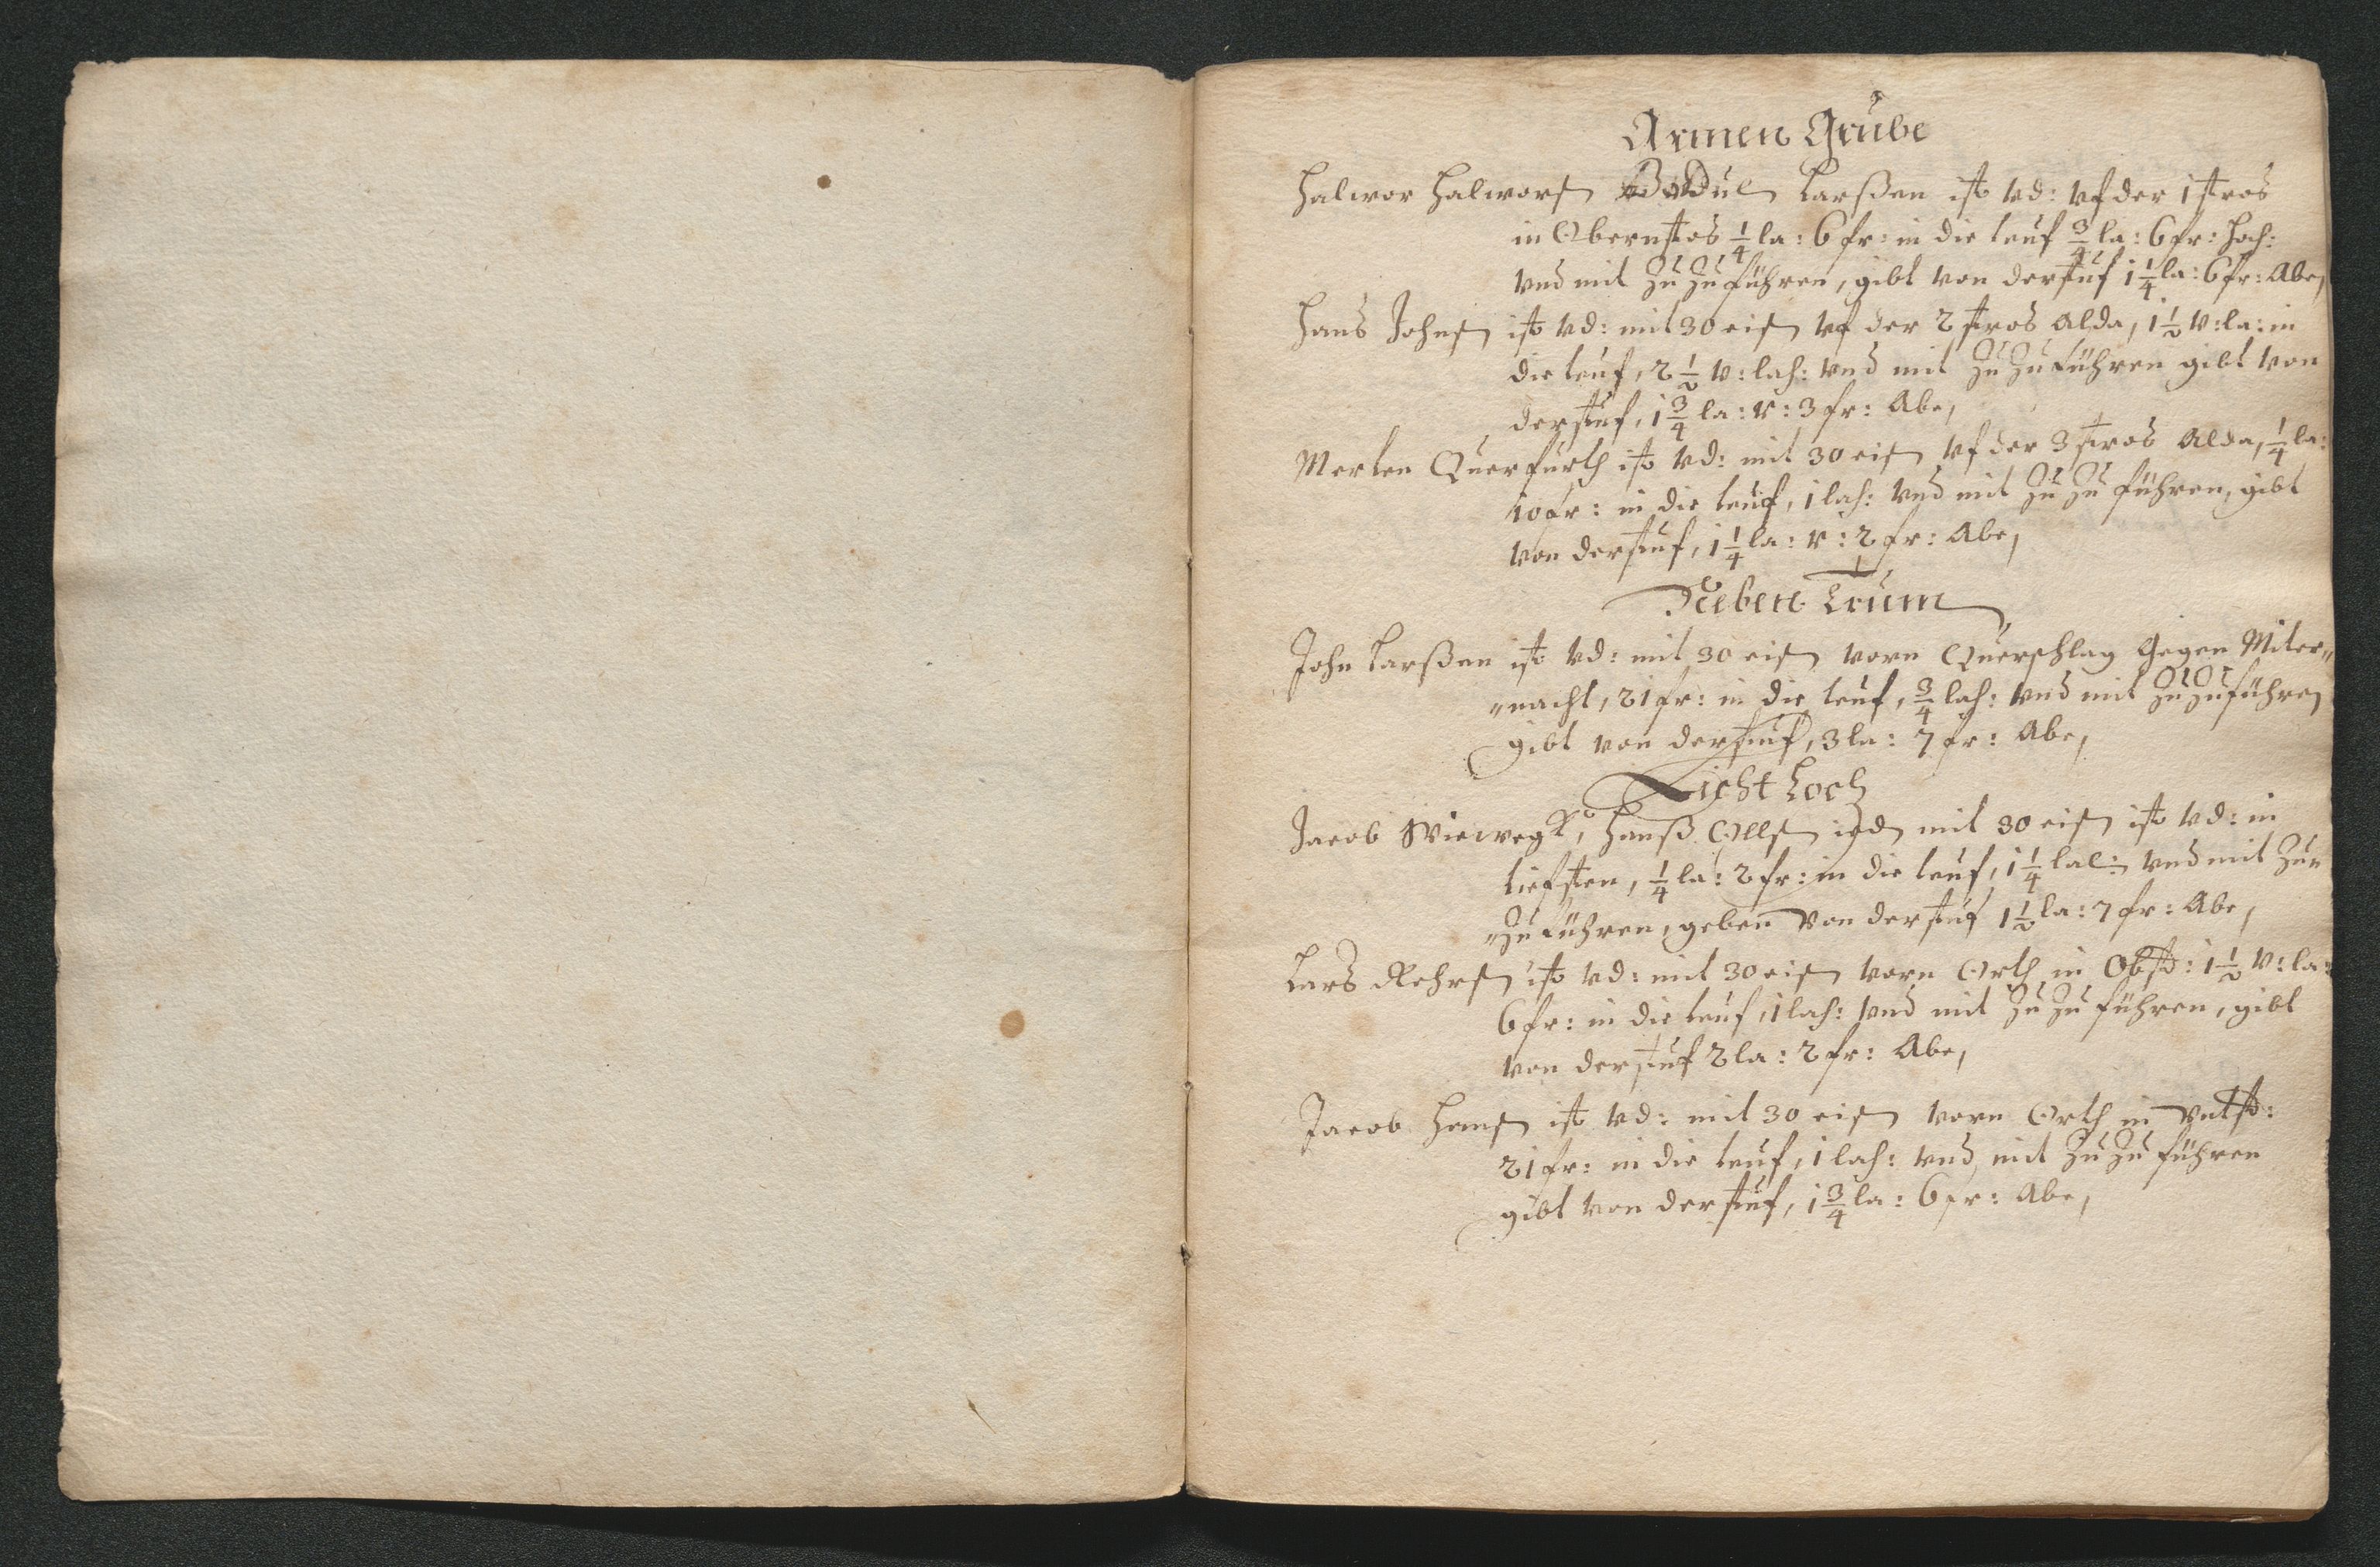 Armen Grube
Halwor Halworsen Larßen ist vd: vf der 1 stros
in Obernstos 1/4 la: 6 fr: in die teuf 3/4 la: 6 fr: hoch:
vnd mit Zu Zu führen, gibt von der stuf 1 1/4 la: 6 fr: Abe,
Hans Johnsen ist vd: mit 30 eisen vf der 2 stros Alda, 1 1/2 v: la: in
die teuf, 2 1/2 v: lah: vnd mit Zu Zu führen gibt von
der stuf, 1 3/4 la: v: 3 fr: Abe,
Merten Querfurth ist vd: mit 30 eisen vf der 3 stros Alda, 1/4 la:
10 fr: in die teuf, 1 lah: vnd mit Zu Zu führen, gibt
von der stuf, 1 1/4 la: v: 2 fr: Abe,
Neben Trum
John Larßen ist vd: mit 30 eisen vorn Querschlag Gegen Miter„
„nacht, 21 fr: in die teuf, 3/4 lah: vnd mit Zu Zu führen
gibt von der stuf, 3 la: 7 fr: Abe,
Licht Loch
Jacob Vieweg, Hanß Ollsen ied mit 30 eisen ist vd: in
tiefsten, 1/4 la: 2 fr: in die teuf, 1 1/4 lal: vnd mit Zu„
„Zu führen, geben von der stuf 1 1/2 la: 7 fr: Abe,
Lars Rehrsen ist vd: mit 30 eisen vorn Orth in Obst: 1 1/2 v: la:
6 fr: in die teuf, 1 lah: vnd mit Zu Zu führen, gibt
von der stuf 2 la: 2 fr: Abe,
Jacob Hansen ist vd: mit 30 eisen vorn Orth in Vntst:
21 fr: in die teuf, 1 lah: vnd mit Zu Zu führen
gibt von der stuf, 1 3/4 la: 6 fr: Abe,